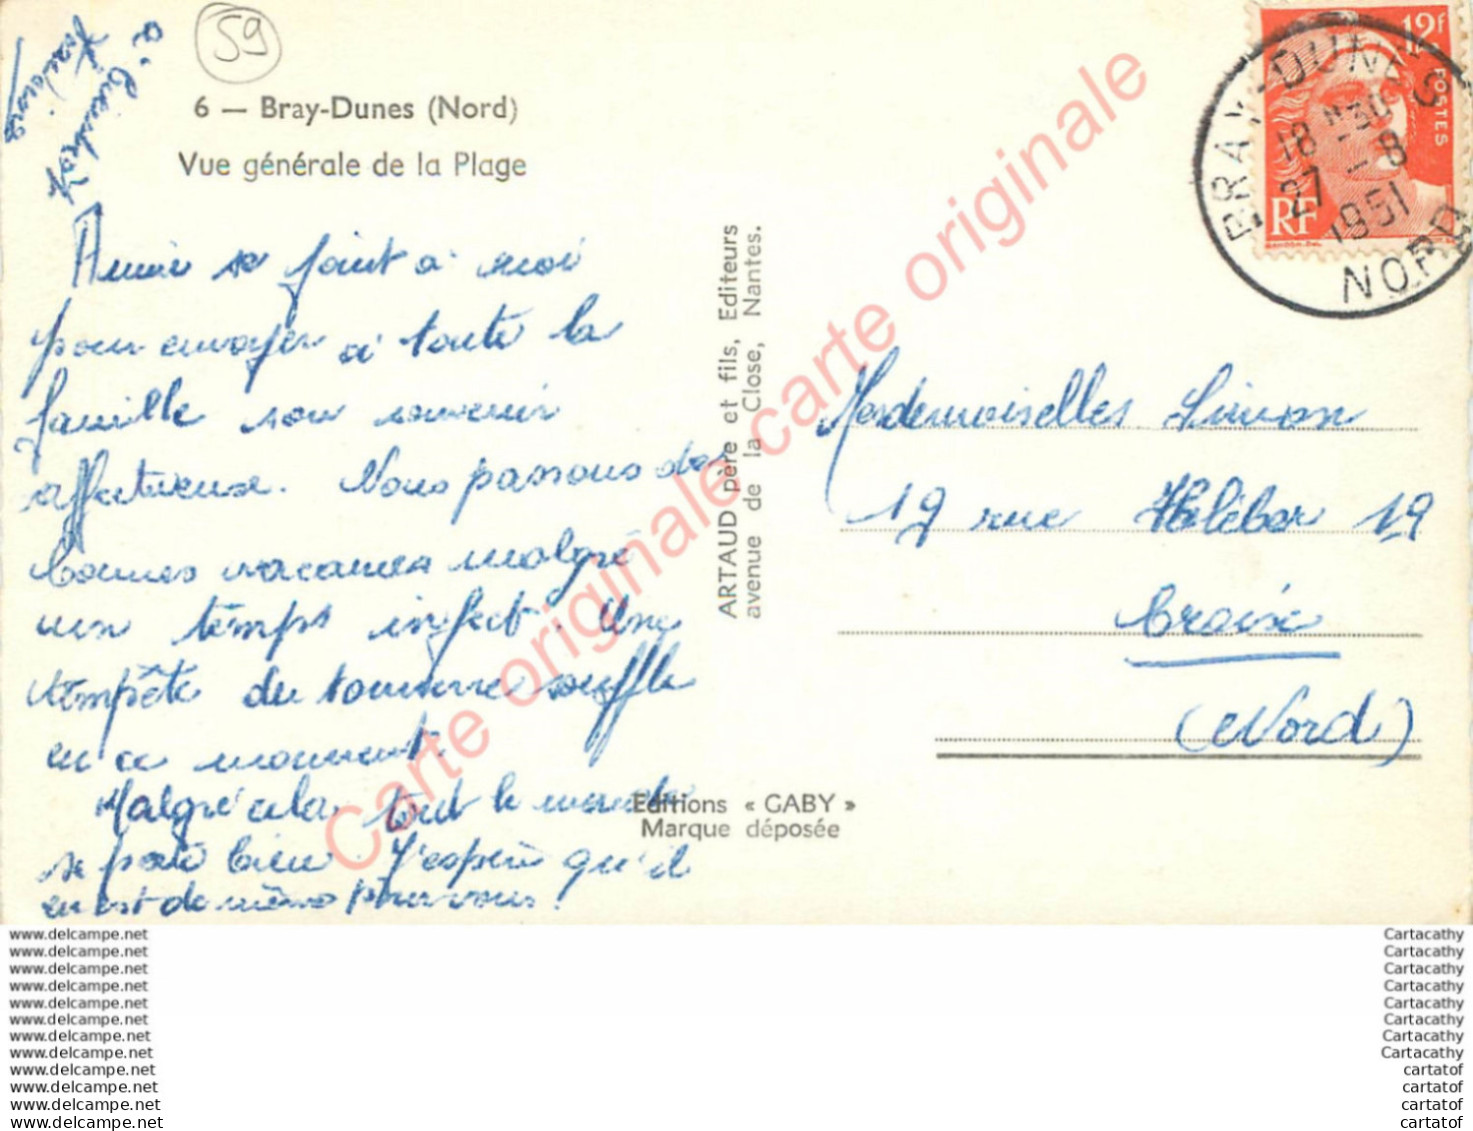 59
6 — Bray-Dunes (Nord)
Vue générale de la Plage
à bientôt
Annie se joint à moi
pour envoyer à toute la
famille son souvenir
affectueux. Nous passons des
bonnes vacances malgré
un temps infect. Une
tempête du tonnerre souffle
en ce moment.
Malgré cela, tout le monde
se porte bien. J'espère qu'il
en est de même pour vous.
ARTAUD père et fils, Editeurs
avenue de la Close, Nantes.
Editions « GABY »
Marque déposée
12f
POSTES
RF
BRAY-DUNES
18 H30
27 - 8
1951
NORD
Mesdemoiselles Simon
19 rue Kléber 19
Croix
(Nord)
Carte originale carte originale
www.delcampe.net
www.delcampe.net
www.delcampe.net
www.delcampe.net
www.delcampe.net
www.delcampe.net
www.delcampe.net
www.delcampe.net
www.delcampe.net
www.delcampe.net
www.delcampe.net
www.delcampe.net
Cartacathy
Cartacathy
Cartacathy
Cartacathy
Cartacathy
Cartacathy
Cartacathy
Cartacathy
cartatof
cartatof
cartatof
cartatof